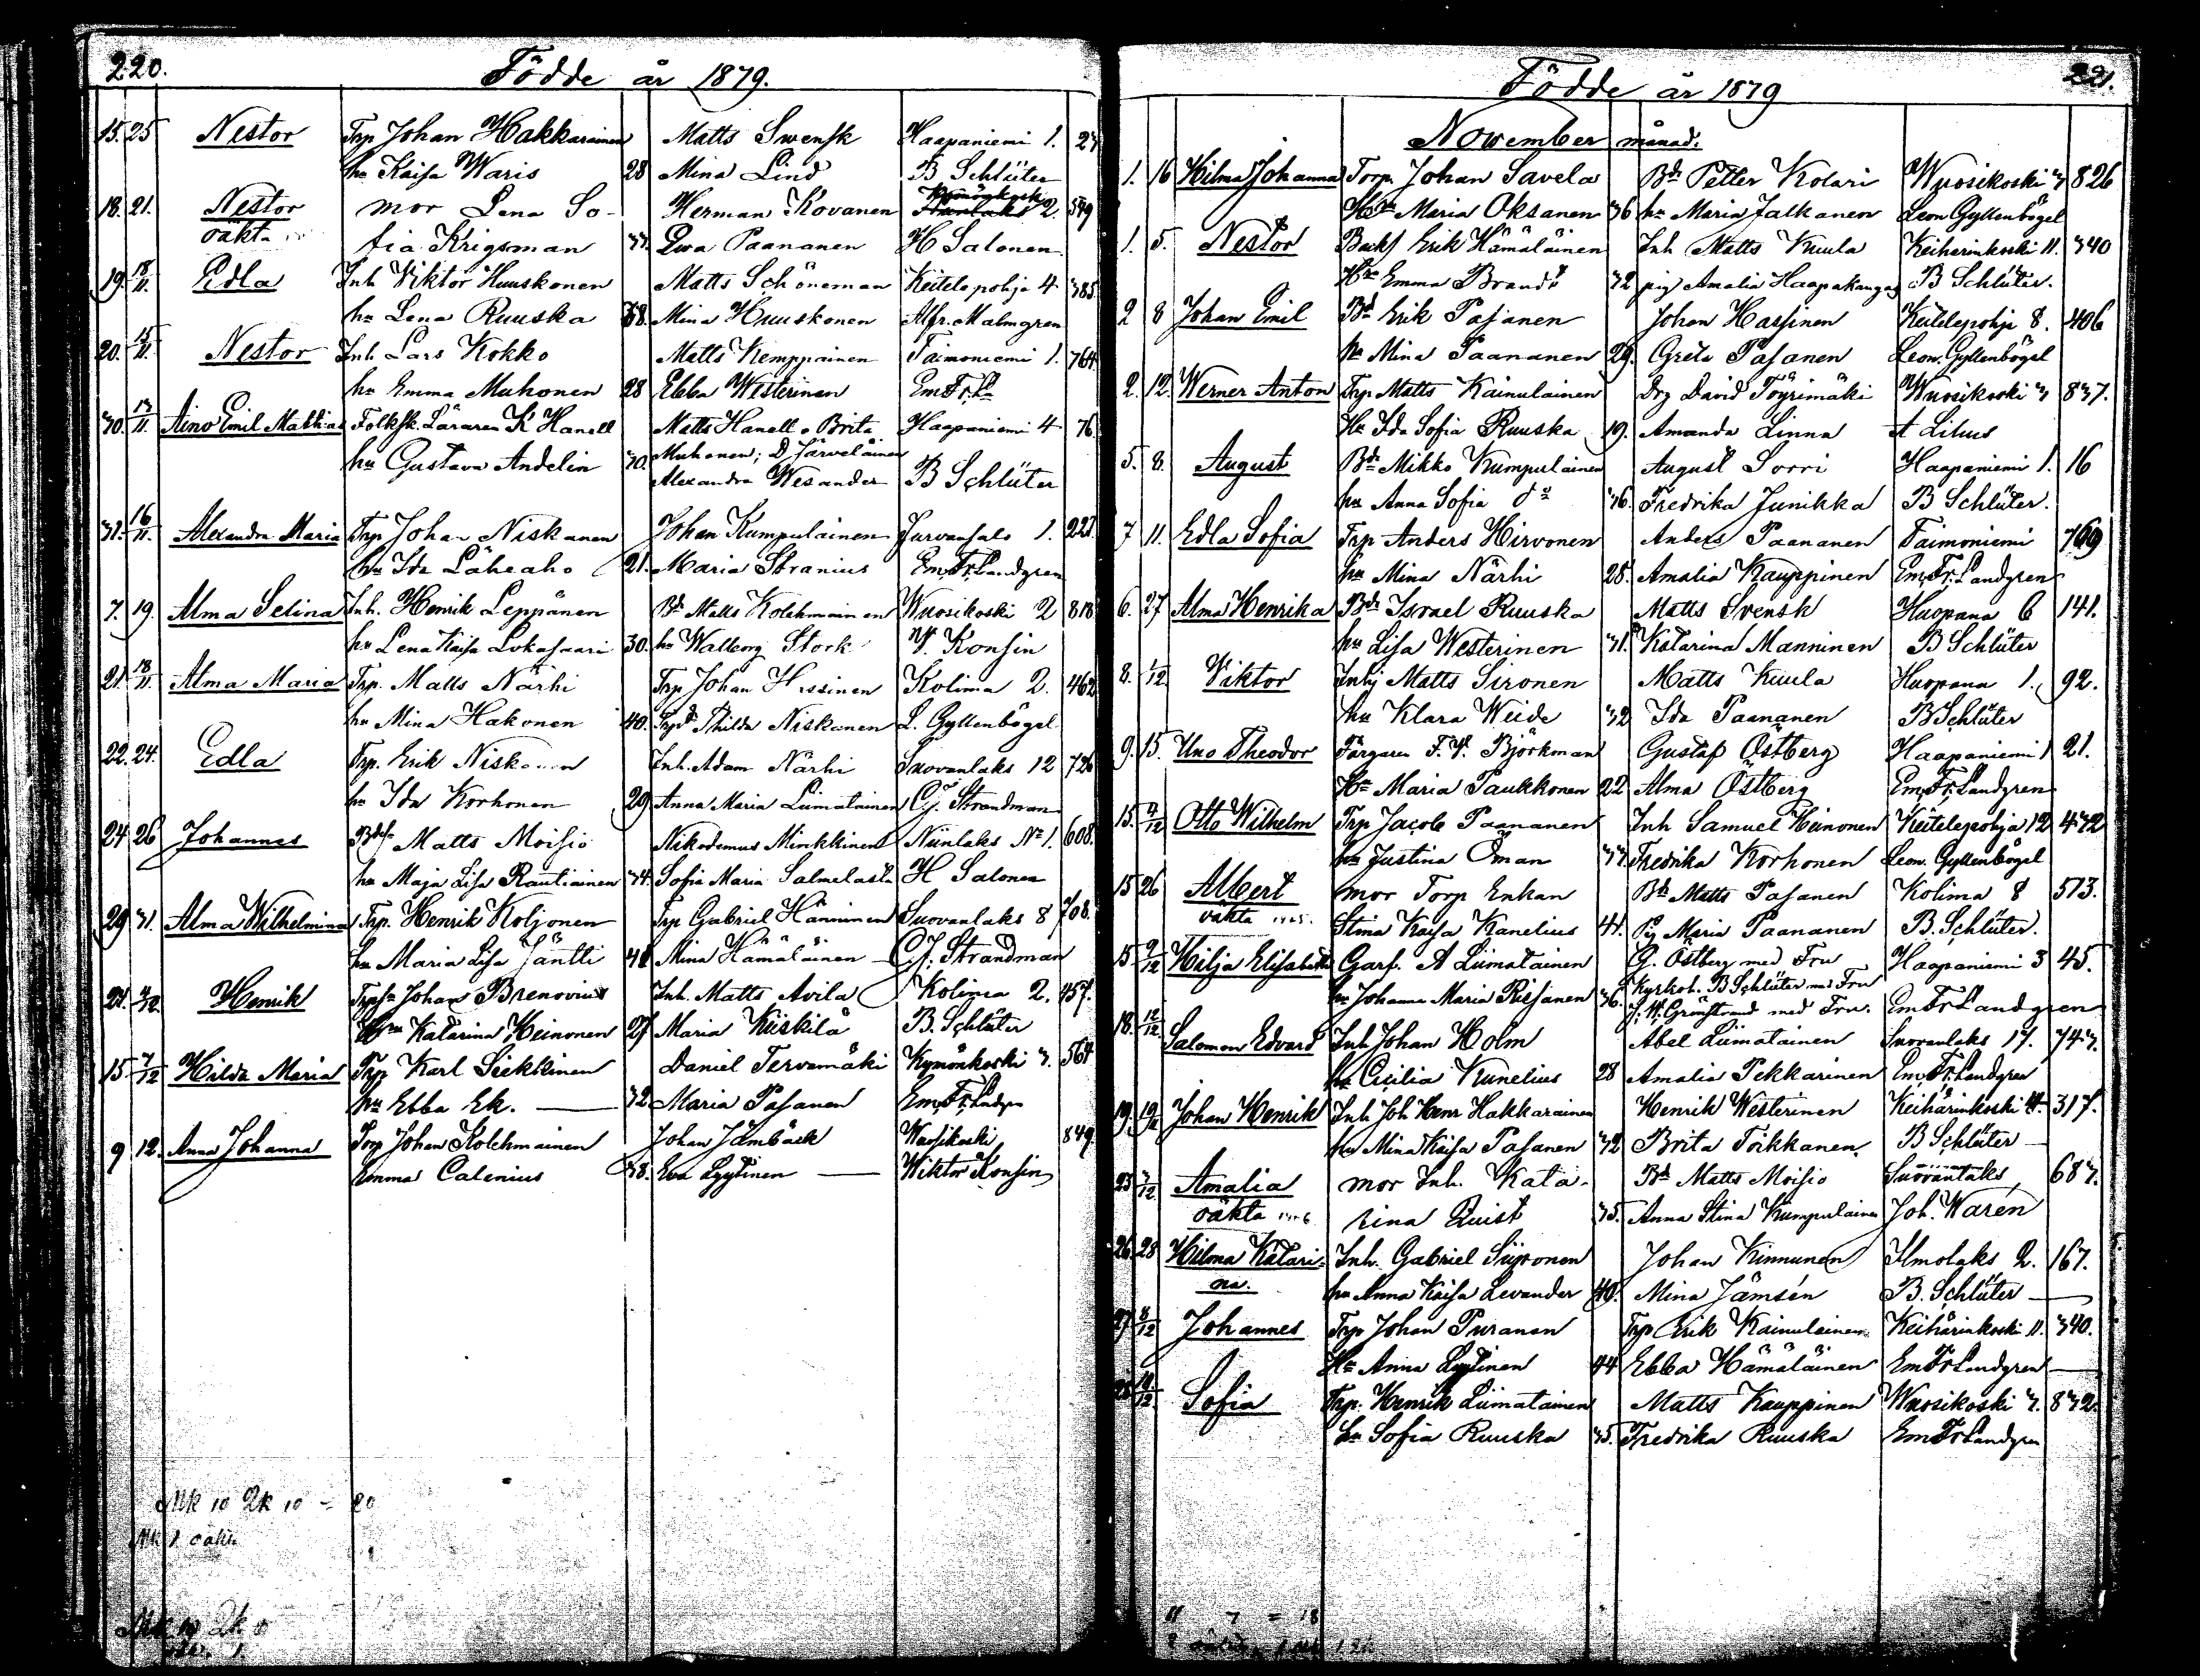 220.
Födde år 1879.
15. 25 Nestor Trp Johan Hakkarainen Matts Swensk Haapaniemi 1. 27
hu Kaisa Waris 28 Mina Lind B Schlüter
18. 21. Nestor mor Lena So- Herman Kovanen Kymönkoski 2. 579
oäkta fia Krigsman 37. Ewa Paananen H Salonen
19. 18/11. Edla Inh Viktor Huuskonen Matts Schöneman Keitelepohja 4 385.
hu Lena Ruuska 38. Mina Huuskonen Alfr. Malmgren
20. 15/11. Nestor Inh. Lars Kokko Matts Kemppainen Taimoniemi 1. 764.
hu Emma Muhonen 28 Ebba Westerinen Em Fr
30. 13/11. Aino Emil Mathias Folksk. Läraren K Hanell Matts Hanell o Brita Haapaniemi 4 76.
hu Gustava Andelin 30. Muhonen; D Järveläinen
Alexandra Wesander B Schlüter
31. 16/11. Alexandra Maria Trp Johan Niskanen Johan Kumpulainen Jurvansalo 1. 222.
hu Ida Läheaho 21. Maria Stranius Em. Fr. Landgren
7. 19. Alma Selina Inh. Henrik Leppänen Bd Matts Kolehmainen Wuosikoski 2 818
hu Lena Kaisa Lokasaari 30. hu Walborg Stork W. Konsin
21. 18/11. Alma Maria Trp. Matts Närhi Trp Johan Hissinen Kolima 2. 462
hu Mina Hakonen 40. Thilda Niskanen L. Gyllenbögel
22. 24. Edla Trp. Erik Niskanen Inh. Adam Närhi Suovanlaks 12 726
hu Ida Korhonen 29 Anna Maria Liimatainen C.J. Strandman
24 26 Johannes Matts Moisio Nikodemus Minkkinen Niinlaks No 1. 608.
hu Maja Lisa Rautiainen 34. Sofia Maria Salmelasta H Salonen
29 31. Alma Wilhelmina Trp. Henrik Koljonen Trp Gabriel Hänninen Suovanlaks 8 708.
hu Maria Lisa Jäntti 41 Mina Hämäläinen C.J. Strandman
21. Henrik Johan Brenovius Inh. Matts Avila Kolima 2. 457.
Katarina Heinonen 27 Maria Kiiskilä B. Schlüter
15. 7/12 Hilda Maria Trp Karl Siekkinen Daniel Tervamäki Kymönkoski 3. 564
hu Ebba Ek. 32 Maria Pasanen Em. Fr. Landgren
9 12. Anna Johanna Torp Johan Kolehmainen Johan Jämbäck Wuosikoski 849.
Emma Calenius 38. Eva Lyytinen Wiktor Konsin
Mk 10 Qk 10 = 20
Mk 1 oäkta
Mk 10 Qk
221.
Födde år 1879
November månad.
1. 16 Hilma Johanna Torp. Johan Savela Bd Petter Kolari Wuosikoski 3 826
Maria Oksanen 36 hu Maria Jalkanen Leon Gyllenbögel
1. 5. Nestor Erik Hämäläinen Inh Matts Kuula Keihärinkoski 11. 340
Emma Brandt 32 pig Amalia Haapakangas B Schlüter.
2 8 Johan Emil Bd Erik Pasanen Johan Hassinen Keitelepohja 8. 406
hu Mina Paananen 29. Greta Pasanen Leon. Gyllenbögel
2. 12. Werner Anton Trp Matts Kainulainen Drg David Töyrimäki Wuosikoski 3 837.
Hu Ida Sofia Ruuska 19. Amanda Linna A Lilius
5. 8. August Bd Mikko Kumpulainen August Sorri Haapaniemi 1. 16
hu Anna Sofia do 36. Fredrika Junikka B Schlüter.
7 11. Edla Sofia Trp Anders Hirvonen Anders Paananen Taimoniemi 769
hu Mina Närhi 28. Amalia Kauppinen Em. Fr. Landgren
6. 27 Alma Henrika Bd Israel Ruuska Matts Svensk Huopana 6 141.
hu Lisa Westerinen 31. Katarina Manninen B Schlüter
8. 1/12 Viktor Inhj Matts Sironen Matts Kuula Huopana 1. 92.
hu Klara Weide 32 Ida Paananen B Schlüter
9. 15. Uno Theodor Färgaren F. W. Björkman Gustaf Östberg Haapaniemi 1 21.
Hu Maria Paukkonen 22 Alma Östberg Em. Fr. Landgren
15. Otto Wilhelm Trp Jacob Paananen Inh Samuel Heinonen Keitelepohja 12 472
hu Justina Öman 37. Fredrika Korhonen Leon. Gyllenbögel
15 26 Albert mor Torp Enkan Bd Matts Pasanen Kolima 8 513.
oäkta Stina Kaisa Kanelius 41. Pig Maria Paananen B. Schlüter.
15 9/12 Hilja Elisabeth Garf. A Liimatainen G. Östberg med Fru Haapaniemi 3 45.
hu Johanna Maria Rissanen 36. Kyrkoh. B Schlüter med Fru
J. W. Grönstrand med Fru. Em Fr Landgren
18. 12/12. Salomon Edvard Inh Johan Holm Abel Liimatainen Suovanlaks 17. 743.
hu Cecilia Kunelius 28 Amalia Pekkarinen Em. Fr. Landgren
19. 19/12 Johan Henrik Inh Joh Henr Hakkarainen Henrik Westerinen Keihärinkoski 4. 317.
hu Mina Kaisa Pasanen 32 Brita Toikkanen B Schlüter
23 3/12 Amalia mor Inh. Kata- Bd Matts Moisio Suovanlaks 683.
oäkta rina Quist 35. Anna Stina Kumpulainen Joh. Warén
26. 28 Hilma Katari- Inh. Gabriel Siironen Johan Kinnunen Ilmolaks 2. 167.
na. hu Anna Kaisa Levander 40. Mina Jämsén B. Schlüter
27 8/12 Johannes Trp Johan Puranen Trp Erik Kainulainen Keihärinkoski 11. 340.
Hu Anna Lyytinen 44 Ebba Hämäläinen Em Fr Landgren
28 11/12. Sofia Trp. Henrik Liimatainen Matts Kauppinen Wuosikoski 3. 832.
hu Sofia Ruuska 35. Fredrika Ruuska Em Fr Landgren
11 7 = 18